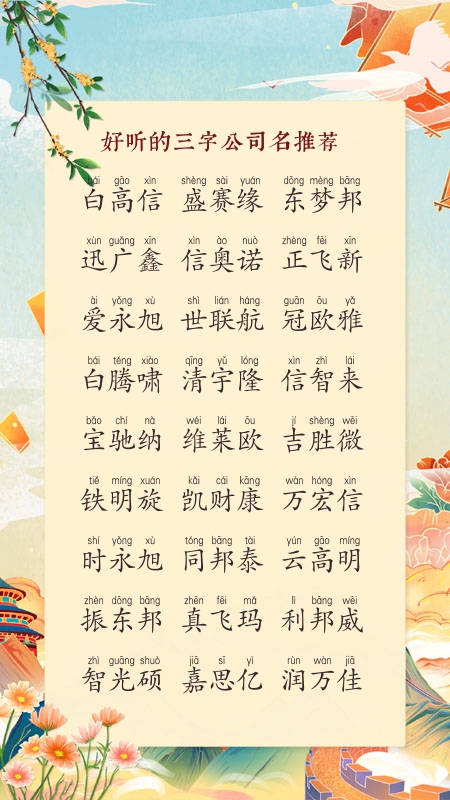 好听的三字公司名推荐
bái gāo xìn shèng sài yuán dōng mèng bāng
白高信 盛赛缘 东梦邦
xùn guǎng xīn xìn ào nuò zhèng fēi xīn
迅广鑫 信奥诺 正飞新
ài yǒng xù shì lián háng guān ōu yǎ
爱永旭 世联航 冠欧雅
bái téng xiào qīng yǔ lóng xìn zhì lái
白腾啸 清宇隆 信智来
bǎo chí nà wéi lái ōu jí shèng wēi
宝驰纳 维莱欧 吉胜微
tiě míng xuán kǎi cái kāng wàn hóng xìn
铁明旋 凯财康 万宏信
shí yǒng xù tóng bāng tài yún gāo míng
时永旭 同邦泰 云高明
zhèn dōng bāng zhēn fēi mǎ lì bāng wēi
振东邦 真飞玛 利邦威
zhì guāng shuò jiā sī yì rùn wàn jiā
智光硕 嘉思亿 润万佳